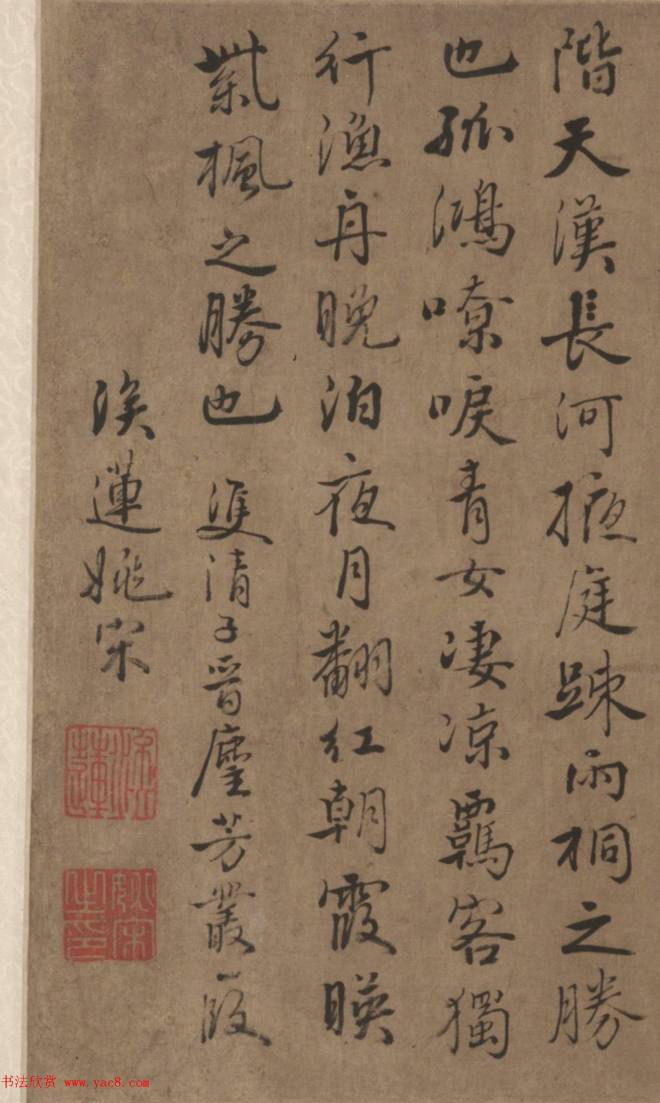 階天漢長河掖庭踈雨桐之勝
也孤鴻嘹唳青女凄凉羈客獨
行漁舟晚泊夜月翻紅朝霞暎
紫楓之勝也 雙清子晉塵芳叢一段
蓮姚宋
姚宋之印
书法欣赏 www.yac8.com